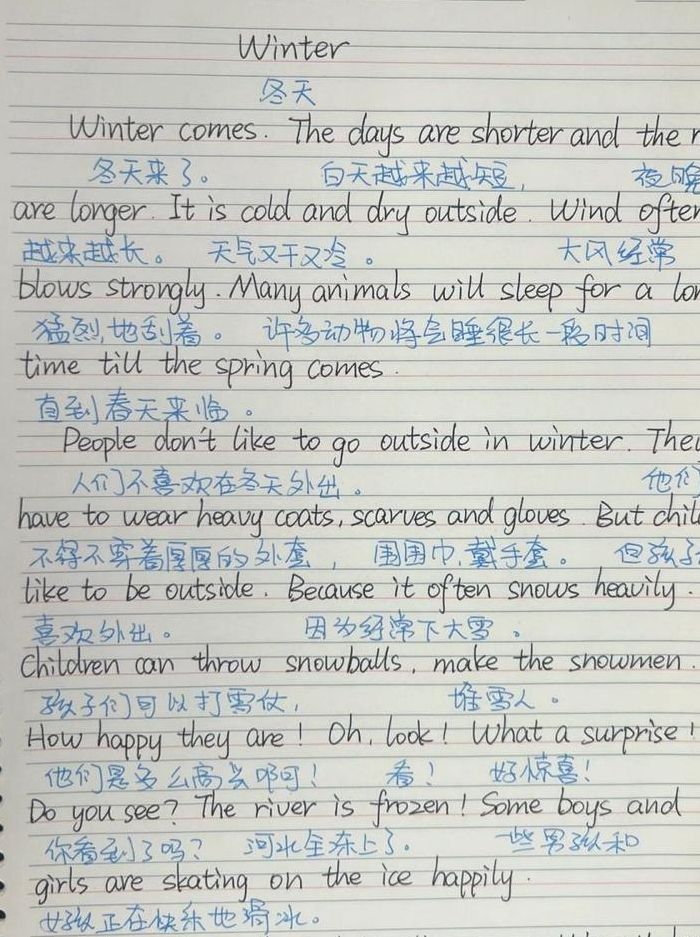 Winter
冬天
Winter comes. The days are shorter and the
冬天来了。 白天越来越短, 夜晚
are longer. It is cold and dry outside. Wind often
越来越长。 天气又干又冷。 大风经常
blows strongly. Many animals will sleep for a
猛烈地刮着。 许多动物将会睡很长一段时间
time till the spring comes.
直到春天来临。
People don't like to go outside in winter. They
人们不喜欢在冬天外出。 他们
have to wear heavy coats, scarves and gloves. But
不得不穿着厚厚的外套, 围围巾,戴手套。 但孩子
like to be outside. Because it often snows heavily.
喜欢外出。 因为经常下大雪。
Children can throw snowballs, make the snowmen.
孩子们可以打雪仗, 堆雪人。
How happy they are! Oh, look! What a surprise!
他们是多么高兴啊! 看! 好惊喜!
Do you see? The river is frozen! Some boys and
你看到了吗? 河水全冻上了。 一些男孩和
girls are skating on the ice happily.
女孩正在快乐地滑冰。